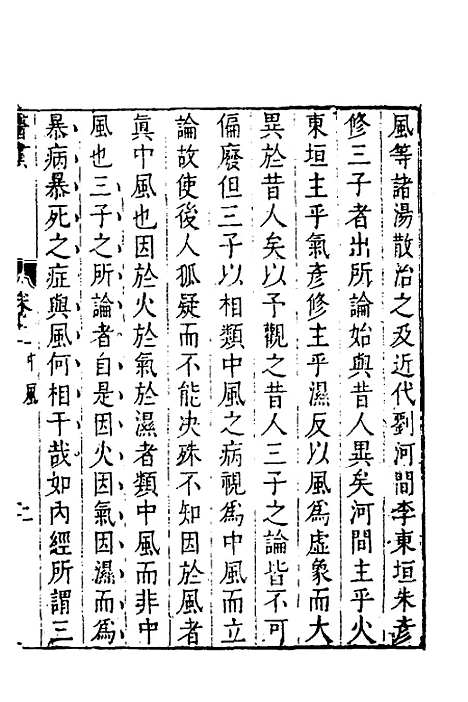 風等諸湯散治之及近代劉河間李東垣朱彦
修三子者出所論始與昔人異矣河間主乎火
東垣主乎氣彦修主乎濕反以風爲虚象而大
異於昔人矣以予觀之昔人三子之論皆不可
偏廢但三子以相類中風之病視爲中風而立
論故使後人狐疑而不能决殊不知因於風者
眞中風也因於火於氣於濕者類中風而非中
風也三子之所論者自是因火因氣因濕而爲
暴病暴死之症與風何相干哉如内經所謂三